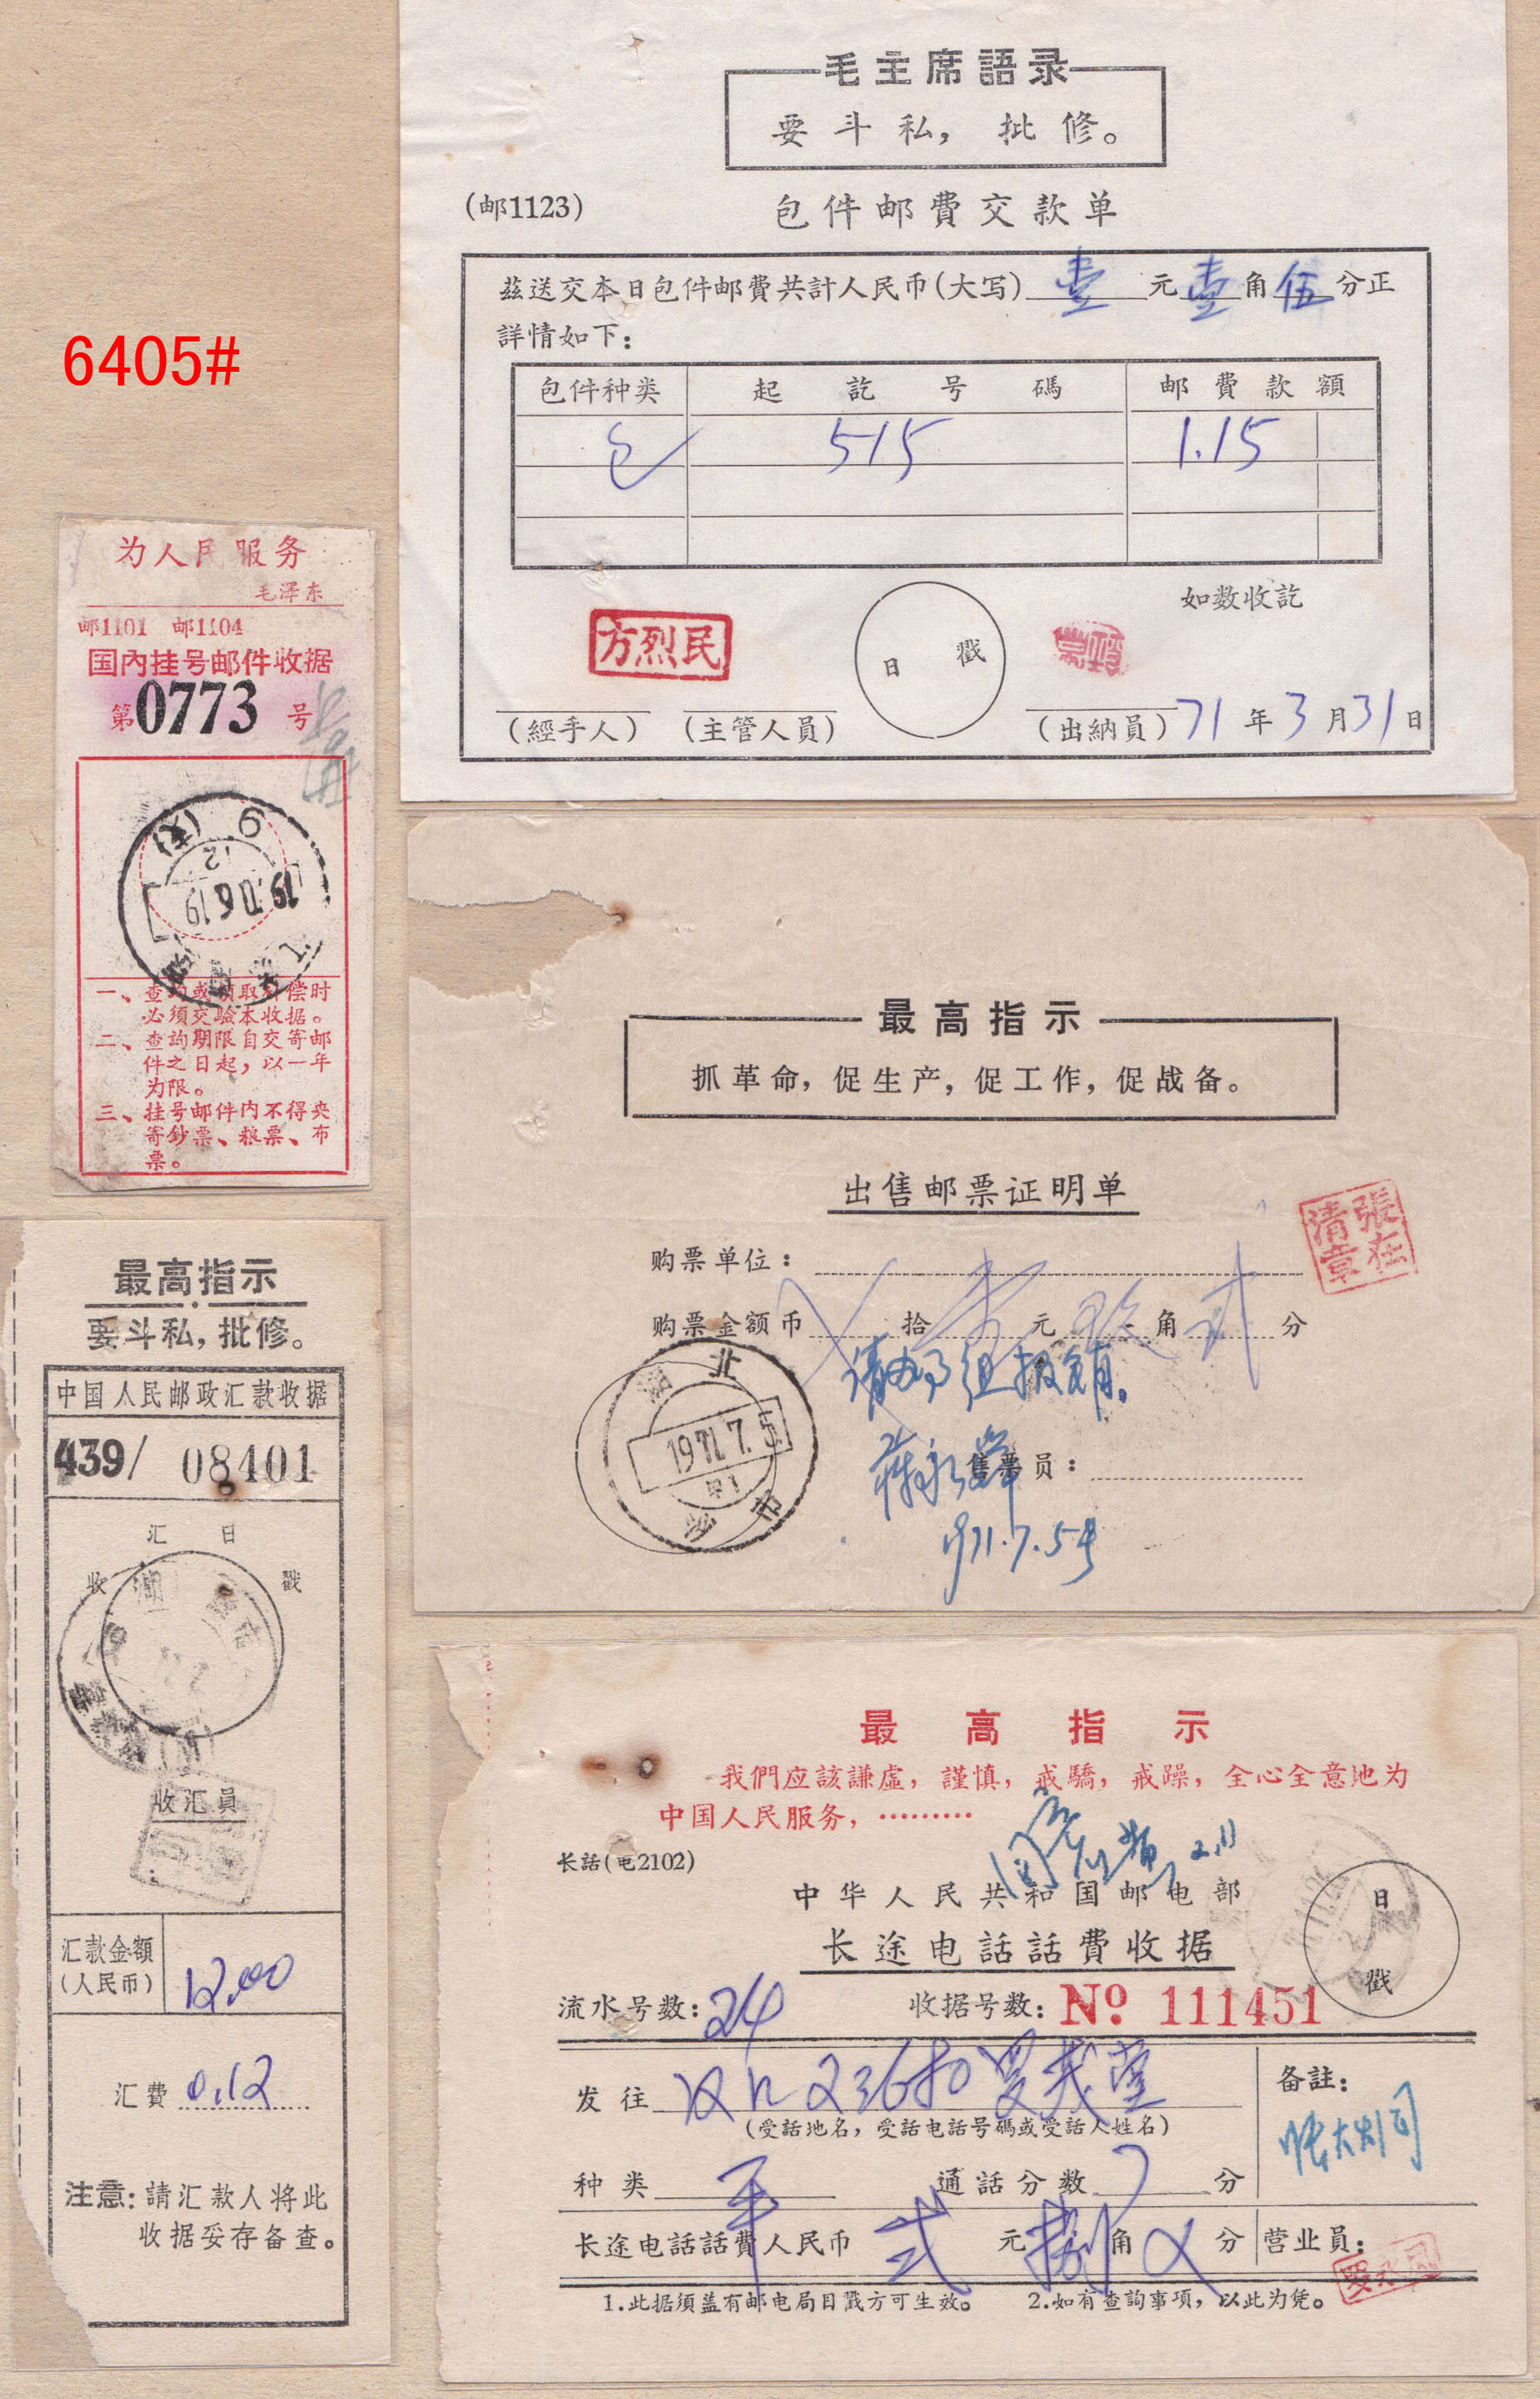 毛主席語录
要斗私，批修。
(邮1123)
包件邮費交款单
茲送交本日包件邮費共計人民币(大写)壹元壹角伍分正
詳情如下：
包件种类 起訖号碼 邮費款額
包 515 1.15
如数收訖
方烈民
日戳
(經手人) (主管人员) (出納員) 71年3月31日
6405#
为人民服务
毛泽东
邮1101 邮1104
国内挂号邮件收据
第0773号
一、查詢或領取补偿时
必須交驗本收据。
二、查詢期限自交寄邮
件之日起，以一年
为限。
三、挂号邮件内不得夹
寄鈔票、粮票、布
票。
最高指示
抓革命，促生产，促工作，促战备。
出售邮票证明单
張在清章
购票单位：
购票金额币 拾 元 角 分
湖北
1971.7.5
请办了组报销。
售票员：
971.7.5号
最高指示
要斗私，批修。
中国人民邮政汇款收据
439/ 08401
收汇日戳
收汇員
汇款金額
(人民币) 12.00
汇費 0.12
注意：請汇款人将此
收据妥存备查。
最高指示
我們应該謙虛，謹慎，戒驕，戒躁，全心全意地为
中国人民服务，………
长話(电2102)
中华人民共和国邮电部
长途电話話費收据
日戳
流水号数：24 收据号数：№ 111451
发往 汉口 23680 罗茂堂
(受話地名，受話电話号碼或受話人姓名)
备註：
种类 平 通話分数 7 分
长途电話話費人民币 弍 元 捌 角 ㄨ 分 营业員：
1.此据須盖有邮电局日戳方可生效。 2.如有查詢事項，以此为凭。